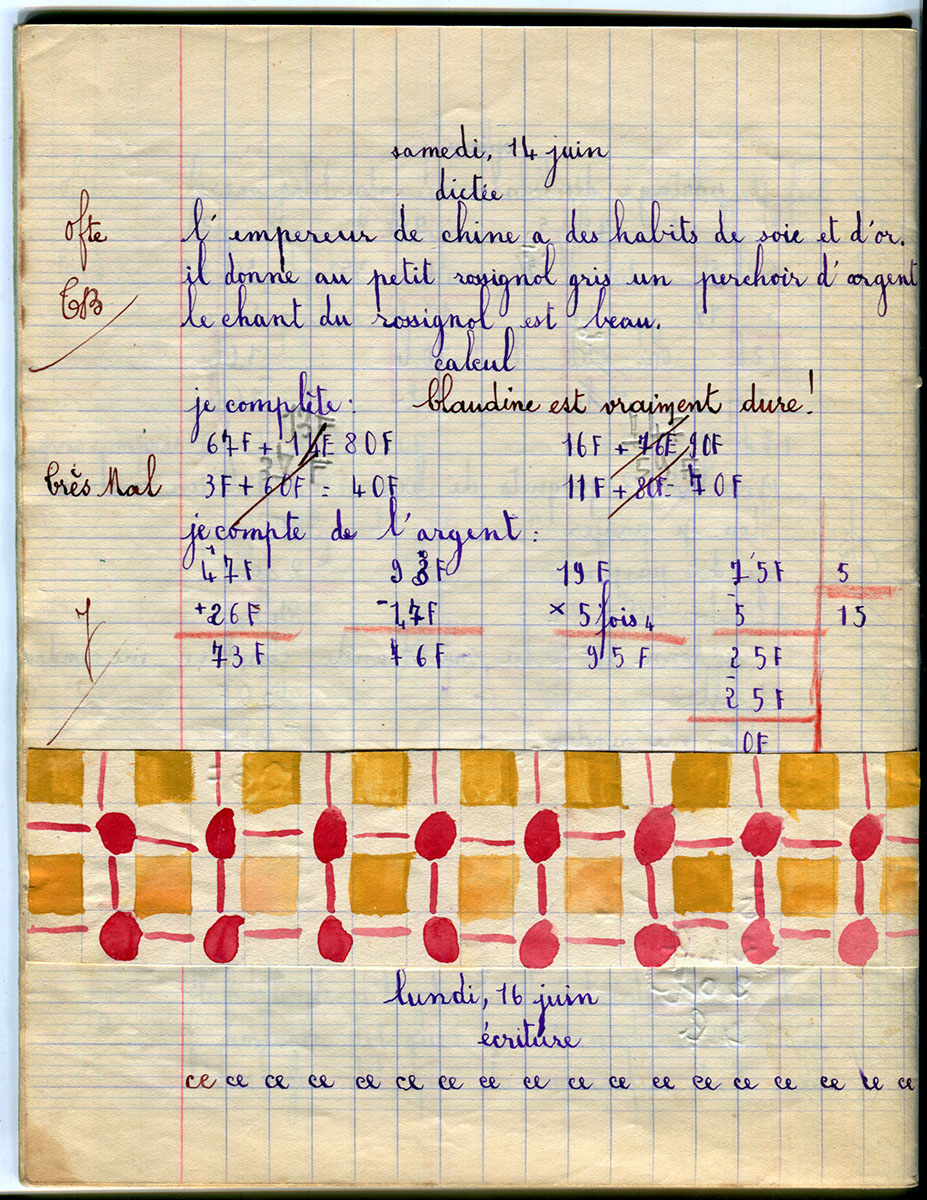 samedi, 14 juin
dictée
ofte
l'empereur de chine a des habits de soie et d'or.
il donne au petit rossignol gris un perchoir d'argent
TB
le chant du rossignol est beau.
calcul
je complète : Claudine est vraiment dure !
67F + 17F = 80F 16F + 76F = 90F
très Mal 3F + 60F = 40F 11F + 80F = 70F
je compte de l'argent :
47F 93F 19F 75F 5
+26F -17F × 5 fois 4 5 15
73F 76F 95F 25F
25F
0F
lundi, 16 juin
écriture
ce ce ce ce ce ce ce ce ce ce ce ce ce ce ce ce ce ce